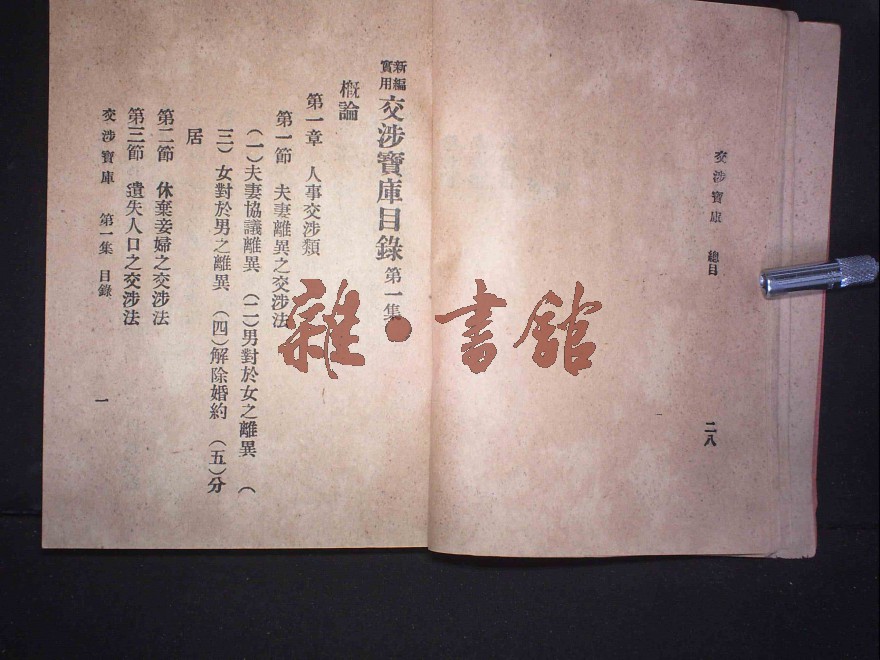 交涉寶庫 總目
二八
新編實用交涉寶庫目錄 第一集
概論
第一章 人事交涉類
第一節 夫妻離異之交涉法
(一)夫妻協議離異 (二)男對於女之離異 (
三)女對於男之離異 (四)解除婚約 (五)分
居
第二節 休棄妾婦之交涉法
第三節 遺失人口之交涉法
交涉寶庫 第一集 目錄
一
雜·書館